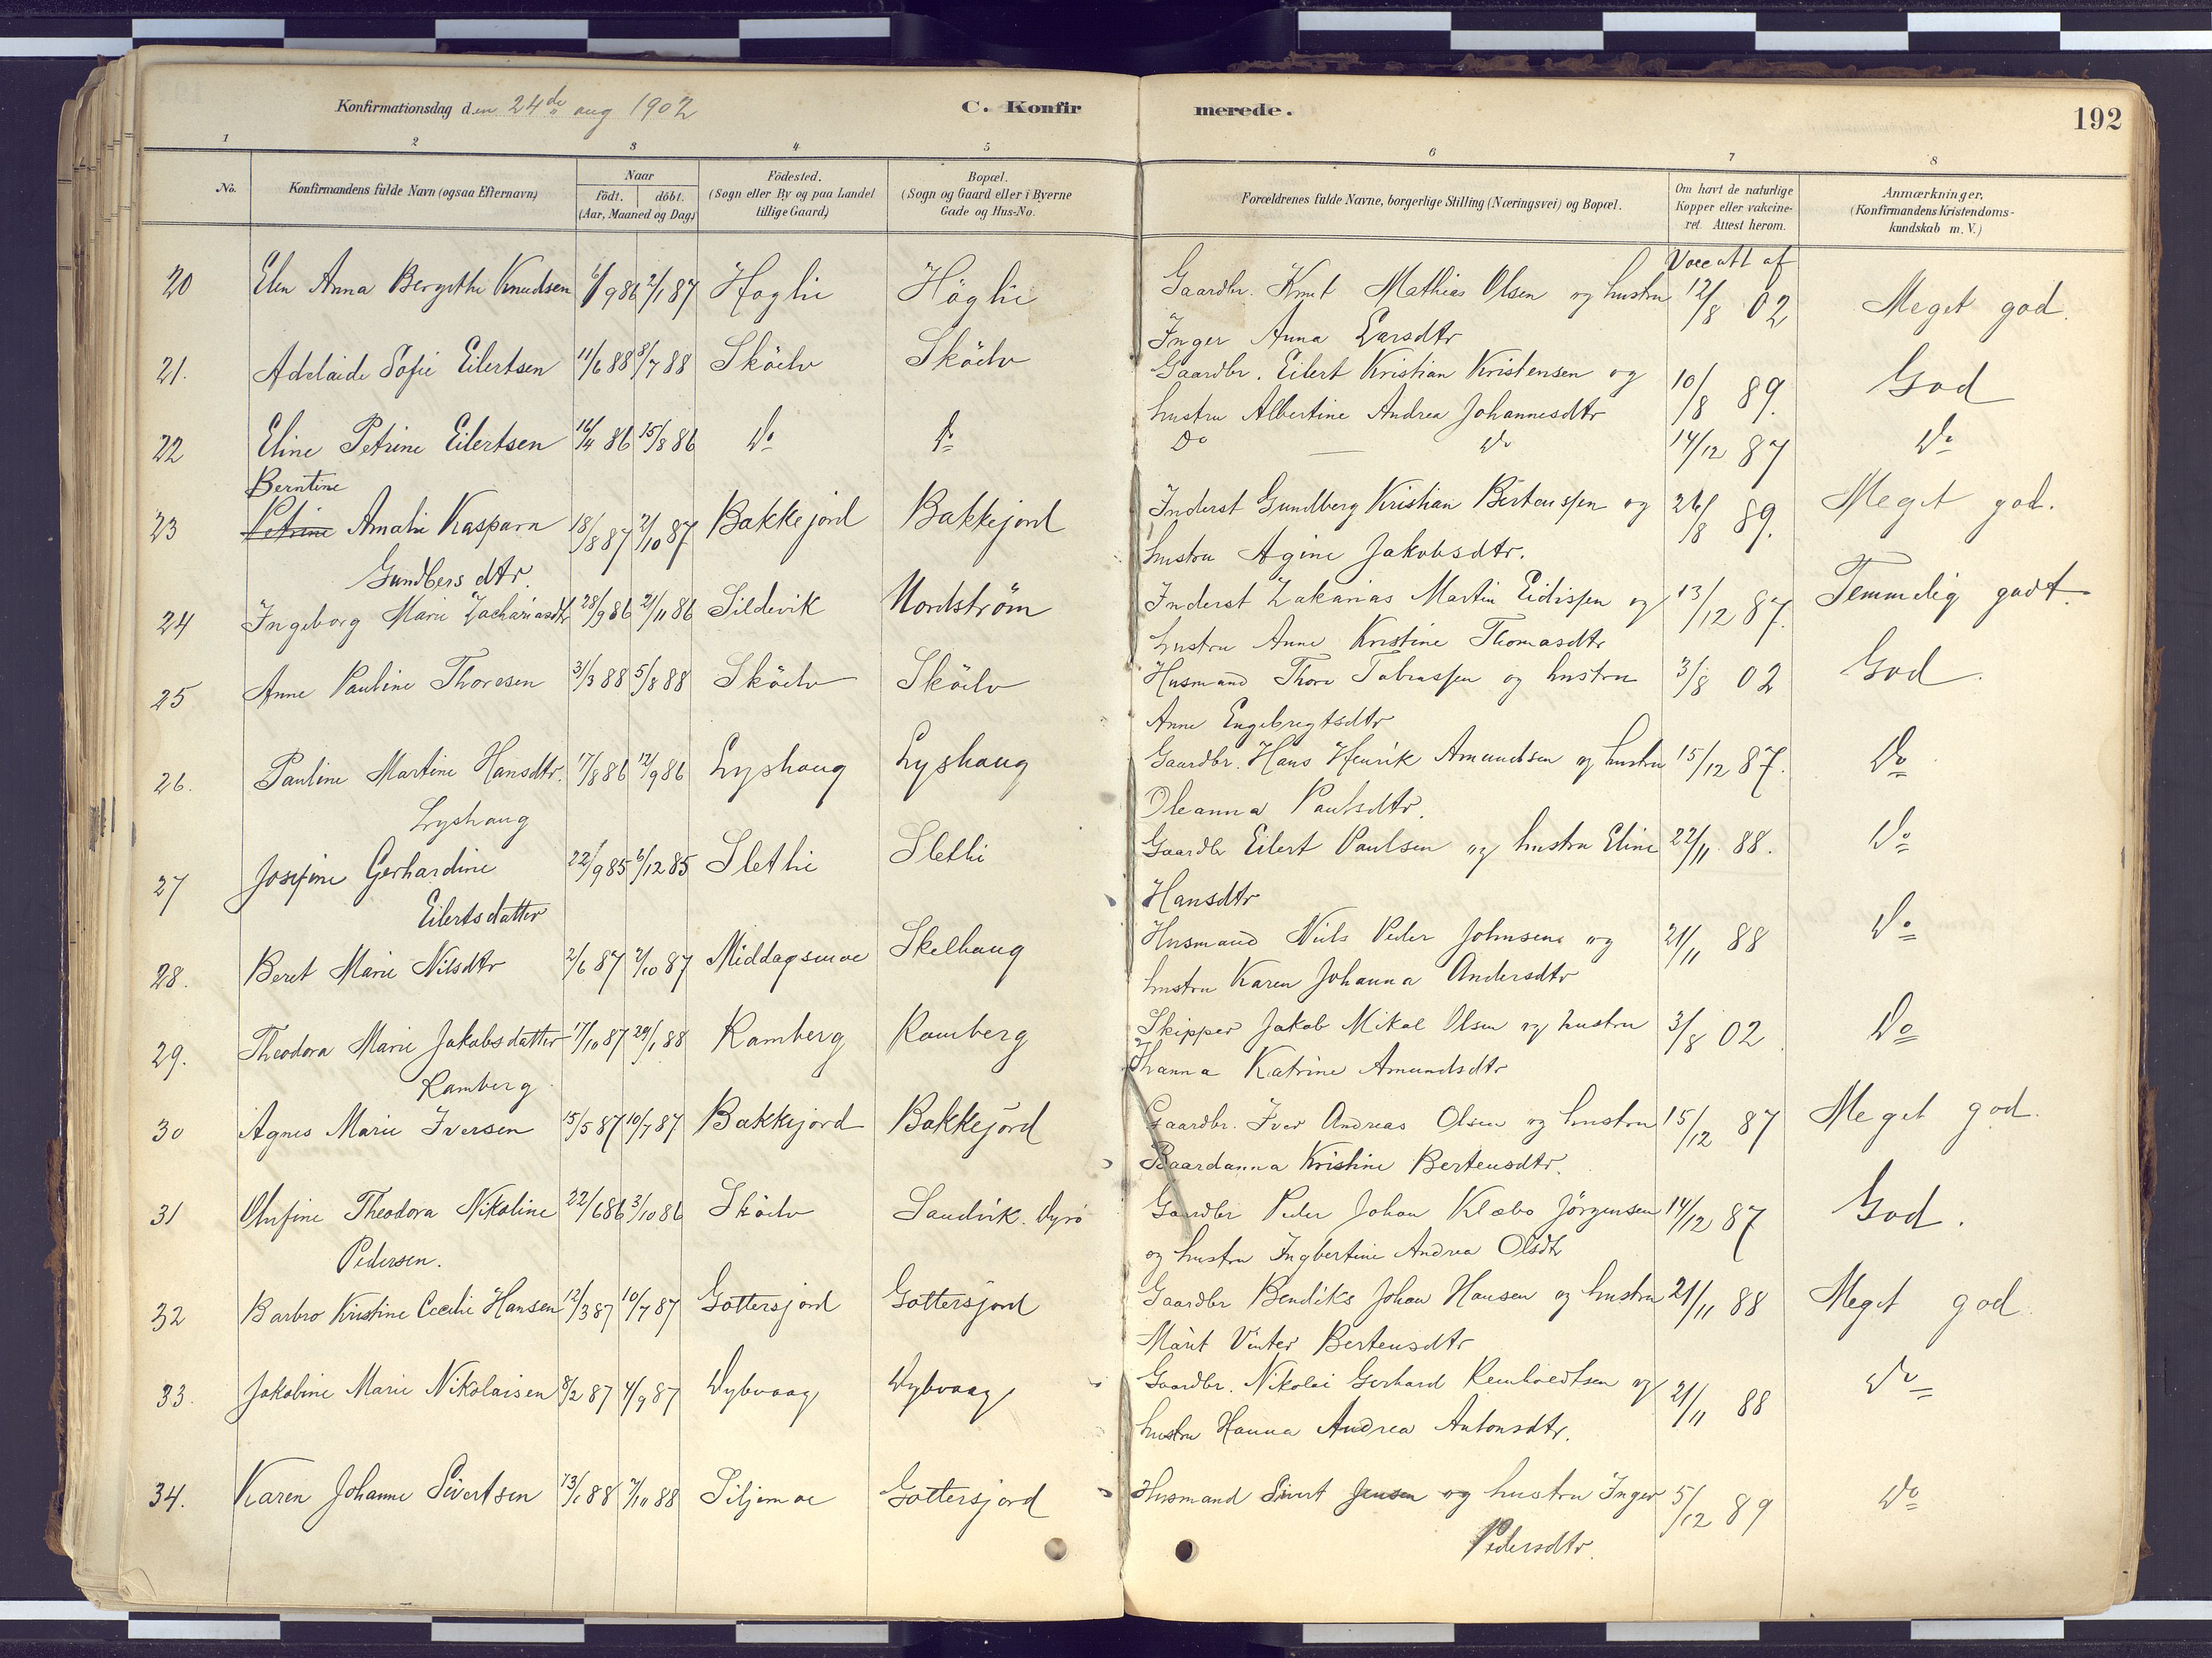 Konfirmationsdag den 24de aug 1902 C. Konfirmerede. 192
1 2 3 4 5 6 7 8
No. Konfirmandens fulde Navn (ogsaa Efternavn) Naar födt. döbt. (Aar, Maaned og Dag) Födested. (Sogn eller By og paa Landet tillige Gaard) Bopæl. (Sogn og Gaard eller i Byerne Gade og Hus-No. Forældrenes fulde Navne, borgerlige Stilling (Næringsvei) og Bopæl. Om havt de naturlige Kopper eller vakcineret. Attest herom. Anmærkninger. (Konfirmandens Kristendomskundskab m. V.)
Vacc att af
20 Elen Anna Bergithe Knudsen 6/9 86 2/1 87 Höglie Höglie Gaardbr. Knut Mathias Olsen og hustru 12/8 02 Meget god.
Inger Anna Larsdtr
21. Adelaide Sofie Eilertsen 11/6 88 8/7 88 Sköelv Sköelv Gaardbr. Eilert Kristian Kristensen og 10/8 89. God
hustru Albertine Andrea Johannesdtr
22 Eline Petrine Eilertsen 16/4 86 15/8 86 Do Do Do — Do 14/12 87 Do
Berntine
23 Petrine Amalie Kaspara 18/8 87 2/10 87 Bakkejord Bakkejord Inderst Gundberg Kristian Bertenssen og 26/8 89. Meget god.
Gundbersdtr. hustru Agine Jakobsdtr.
24 Ingeborg Marie Zachariasdtr 28/9 86 21/11 86 Sildevik Nordström Inderst Zakarias Martin Eidissen og 13/12 87. Temmelig godt.
hustru Anne Kristine Thomasdtr
25 Anne Pauline Thoresen 31/3 88 5/8 88 Sköelv Sköelv Husmand Thore Tobiassen og hustru 3/8 02 God.
Anne Engebregtsdtr
26. Pauline Martine Hansdtr. 17/8 86 12/9 86 Lyshaug Lyshaug Gaardbr. Hans Henrik Amundsen og hustru 15/12 87. Do
Lyshaug Oleanna Paulsdtr.
27 Josefine Gerhardine 22/9 85 6/12 85 Sletlie Sletlie Gaardbr Eilert Paulsen og hustru Eline 22/11 88. Do
Eilertsdatter Hansdtr
28. Beret Marie Nilsdtr 2/6 87 2/10 87 Middagsmoe Skelhaug Husmand Niils Peder Johnsen og 21/11 88 Do
hustru Karen Johanna Andersdtr
29. Theodora Marie Jakobsdatter 17/10 87 29/1 88 Ramberg Ramberg Skipper Jakob Mikal Olsen og hustru 3/8 02 Do
Ramberg Hanna Katrine Amundsdtr
30 Agnes Marie Iversen 15/5 87 10/7 87 Bakkejord Bakkejord Gaardbr. Iver Andreas Olsen og hustru 15/12 87 Meget god.
Baardanna Kristine Bertensdtr.
31 Olufine Theodora Nikoline 22/6 86 3/10 86 Sköelv Sandvik. Dyrö Gaardbr Peder Johan Klæbo Jörgensen 14/12 87 God.
Pedersen. og hustru Ingbertine Andrea Olsdtr
32 Barbro Kristine Cecilie Hansen 12/3 87 10/7 87 Gottersjord Gottersjord Gaardbr Bendiks Johan Hansen og hustru 21/11 88 Meget god
Marit Vinter Bertensdtr
33. Jakobine Marie Nikolaisen 8/2 87 4/9 87 Dybvaag Dybvaag Gaardbr. Nikolai Gerhard Reinholdtsen og 21/11 88 Do
hustru Hanna Andrea Antonsdtr.
34. Karen Johanne Sivertsen 13/1 88 7/10 88 Siljemoe Gottersjord Husmand Sivert Jensen og hustru Inger 5/12 89 Do
Pedersdtr.